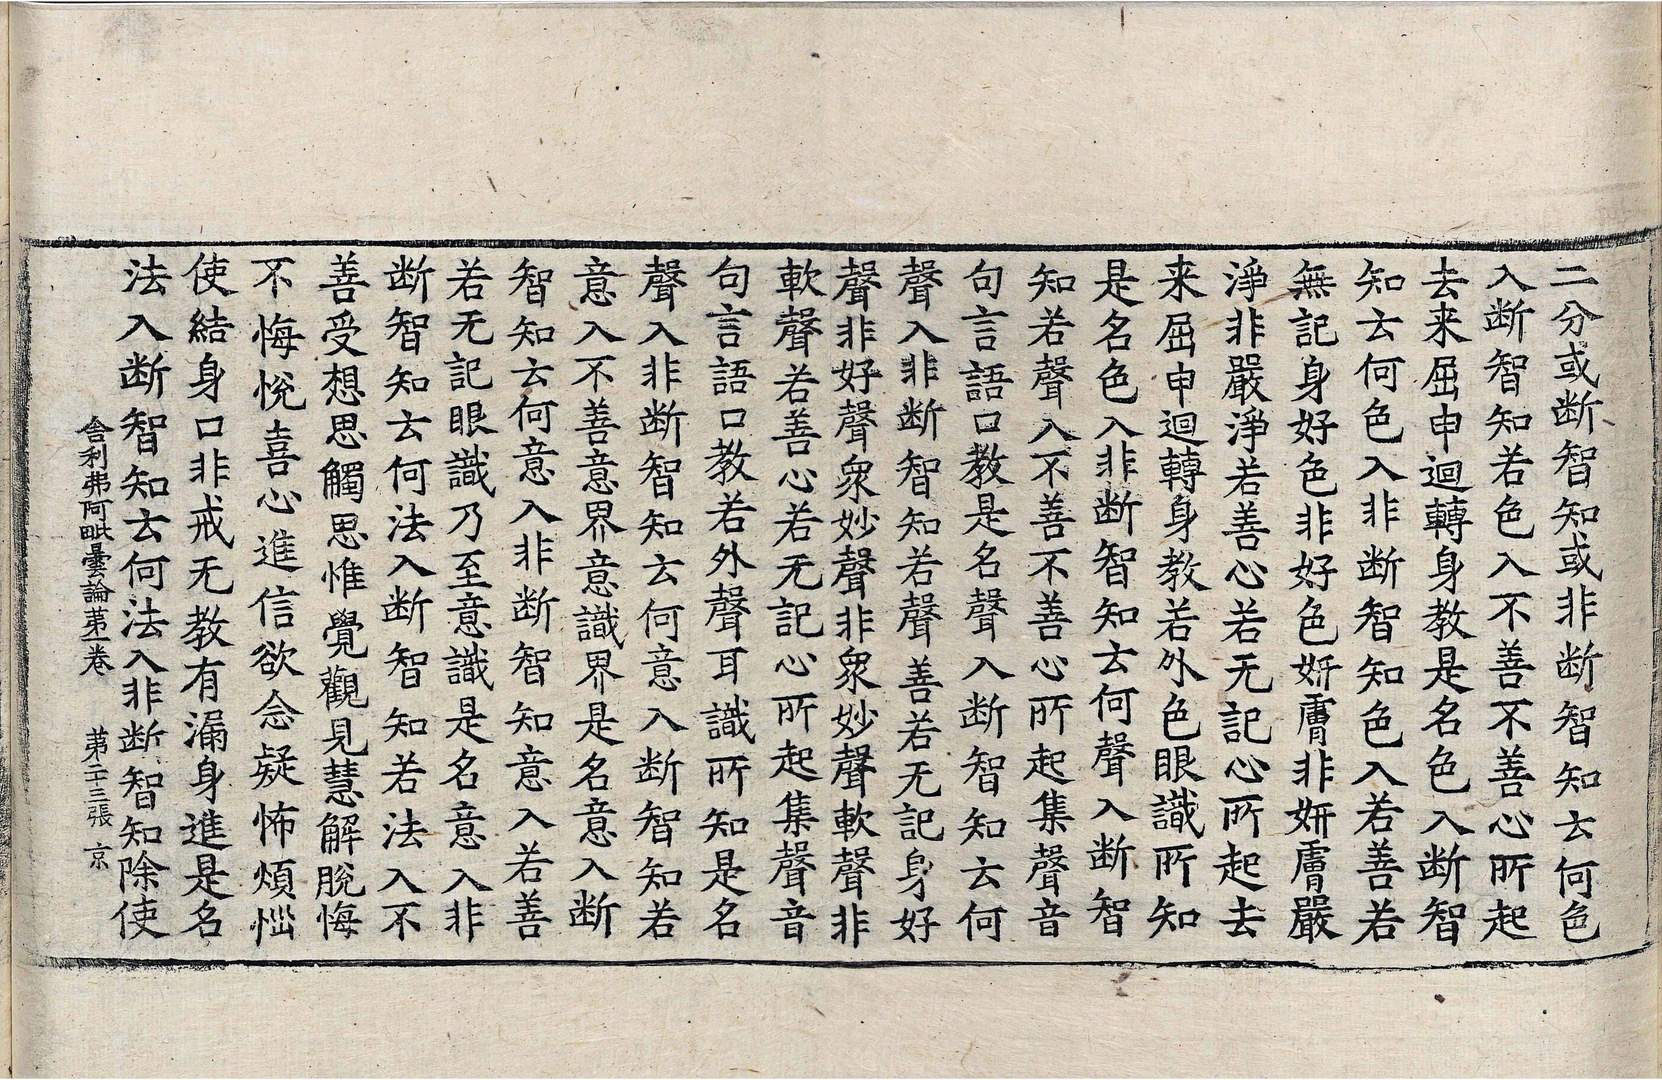 二分或断智知或非断智知云何色
入断智知若色入不善不善心所起
去来屈申迴轉身教是名色入断智
知云何色入非断智知色入若善若
無記身好色非好色妍膚非妍膚嚴
淨非嚴淨若善心若无記心所起去
来屈申迴轉身教若外色眼識所知
是名色入非断智知云何聲入断智
知若聲入不善不善心所起集聲音
句言語口教是名聲入断智知云何
聲入非断智知若聲善若无記身好
聲非好聲衆妙聲非衆妙聲軟聲非
軟聲若善心若无記心所起集聲音
句言語口教若外聲耳識所知是名
聲入非断智知云何意入断智知若
意入不善意界意識界是名意入断
智知云何意入非断智知意入若善
若无記眼識乃至意識是名意入非
断智知云何法入断智知若法入不
善受想思觸思惟覺觀見慧解脫悔
不悔悅喜心進信欲念疑怖煩惱
使結身口非戒无教有漏身進是名
法入断智知云何法入非断智知除使
舍利弗阿毗曇論第一卷 第二十三張 京